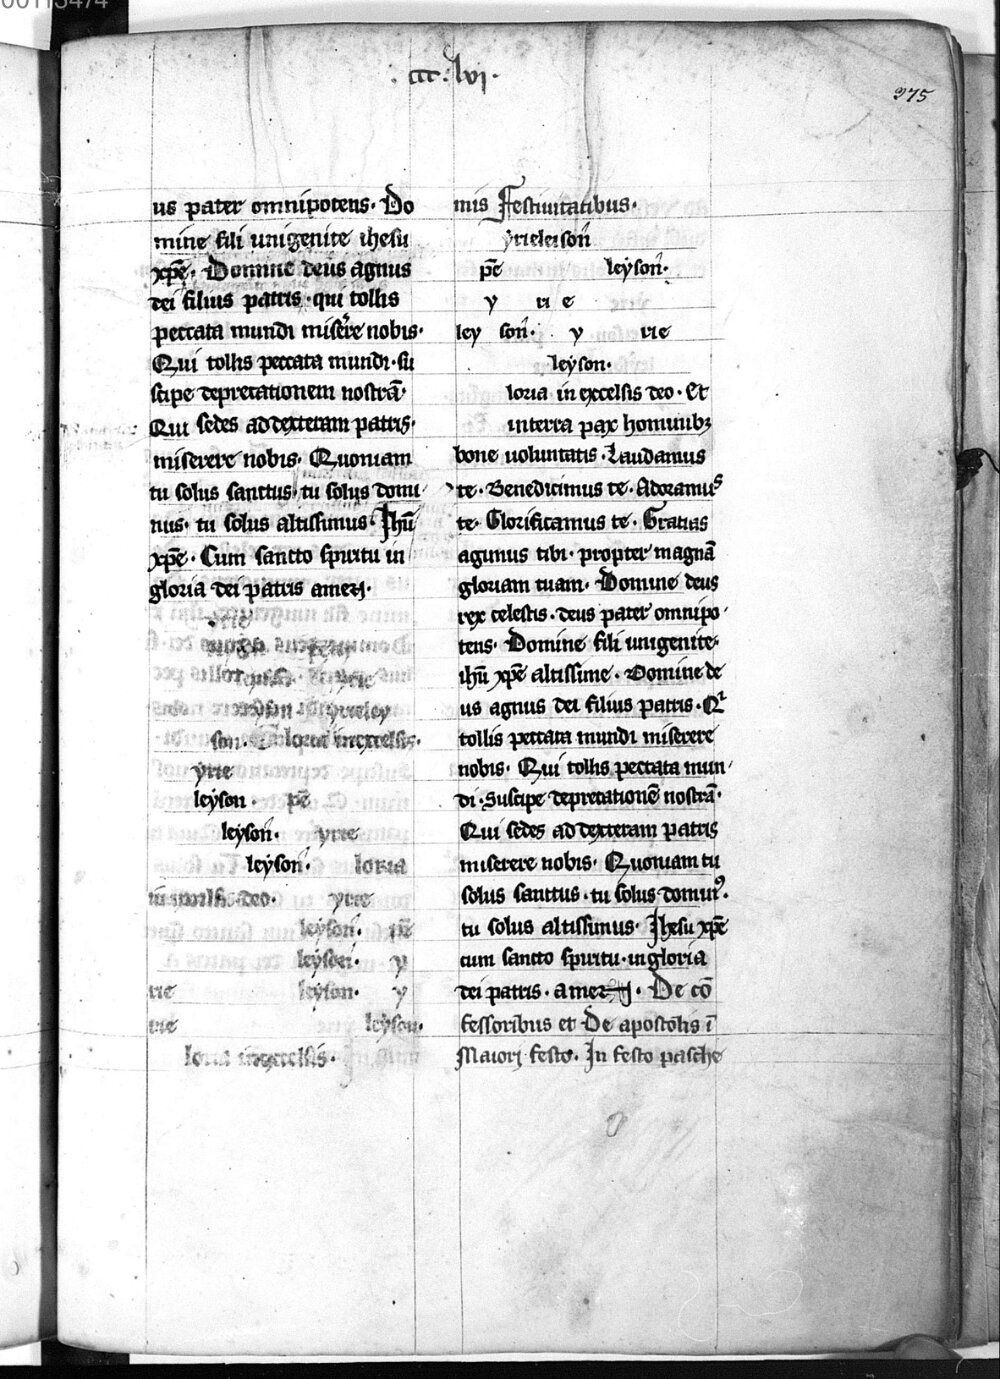 00113474
·ccc·lvi·
275
us pater omnipotens· Do
mine fili unigenite ihesu
xp̄e· Domine deus agnus
dei filius patris· qui tollis
peccata mundi misere nobis·
Qui tollis peccata mundi· su
scipe deprecationem nostrā·
Qui sedes ad dexteram patris·
miserere nobis· Quoniam
tu solus sanctus· tu solus domi
nus· tu solus altissimus· Jhū
xp̄e· Cum sancto spiritu in
gloria dei patris amen·
yrieley
son· loria in excelsis·
yrie
leyson· pē
leyson̄· yrie
leyson̄· loria
deo· yrie
leyson̄· pē
y
rie leyson· y
rie leyson·
loria in excelsis·
mis Festiuitatibus·
yrieleison̄
pē leyson̄·
y ri e
ley son̄· y rie
leyson·
loria in excelsis deo· Et
in terra pax hominibꝫ
bone uoluntatis· Laudamus
te· Benedicimus te· Adoramus
te· Glorificamus te· Gratias
agimus tibi· propter magnā
gloriam tuam· Domine deus
rex celestis· deus pater omnipo
tens· Domine fili unigenite·
ihū xp̄e altissime· Domine de
us agnus dei filius patris· Qi
tollis peccata mundi miserere
nobis· Qui tollis peccata mun
di· Suscipe deprecationē nostrā·
Qui sedes ad dexteram patris
miserere nobis· Quoniam tu
solus sanctus· tu solus dominꝰ·
tu solus altissimus· Jhesu xp̄e
cum sancto spiritu· in gloria
dei patris· amen· De cō
fessoribus et De apostolis ī
Maiori festo· In festo pasche